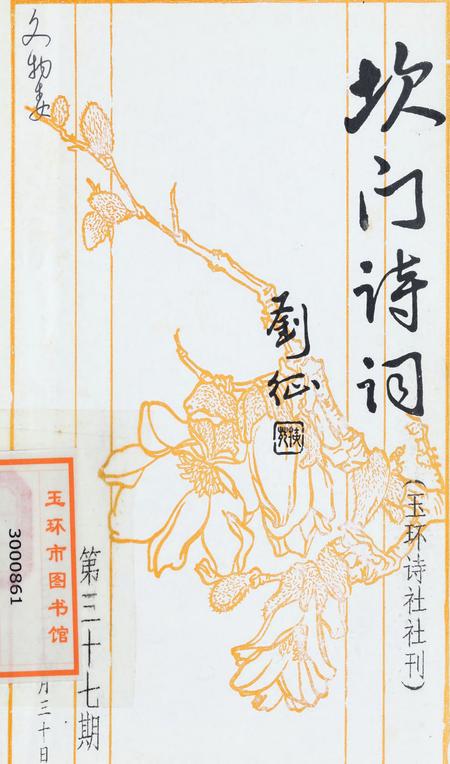 坎门诗词
(玉环诗社社刊)
劉征
第三十七期
月三十日
文物
玉环市图书馆
3000861